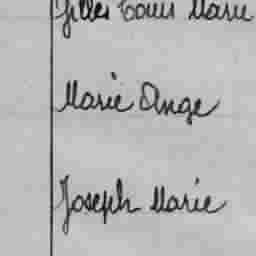 Gilles Louis Marie
Marie Ange
Joseph Marie